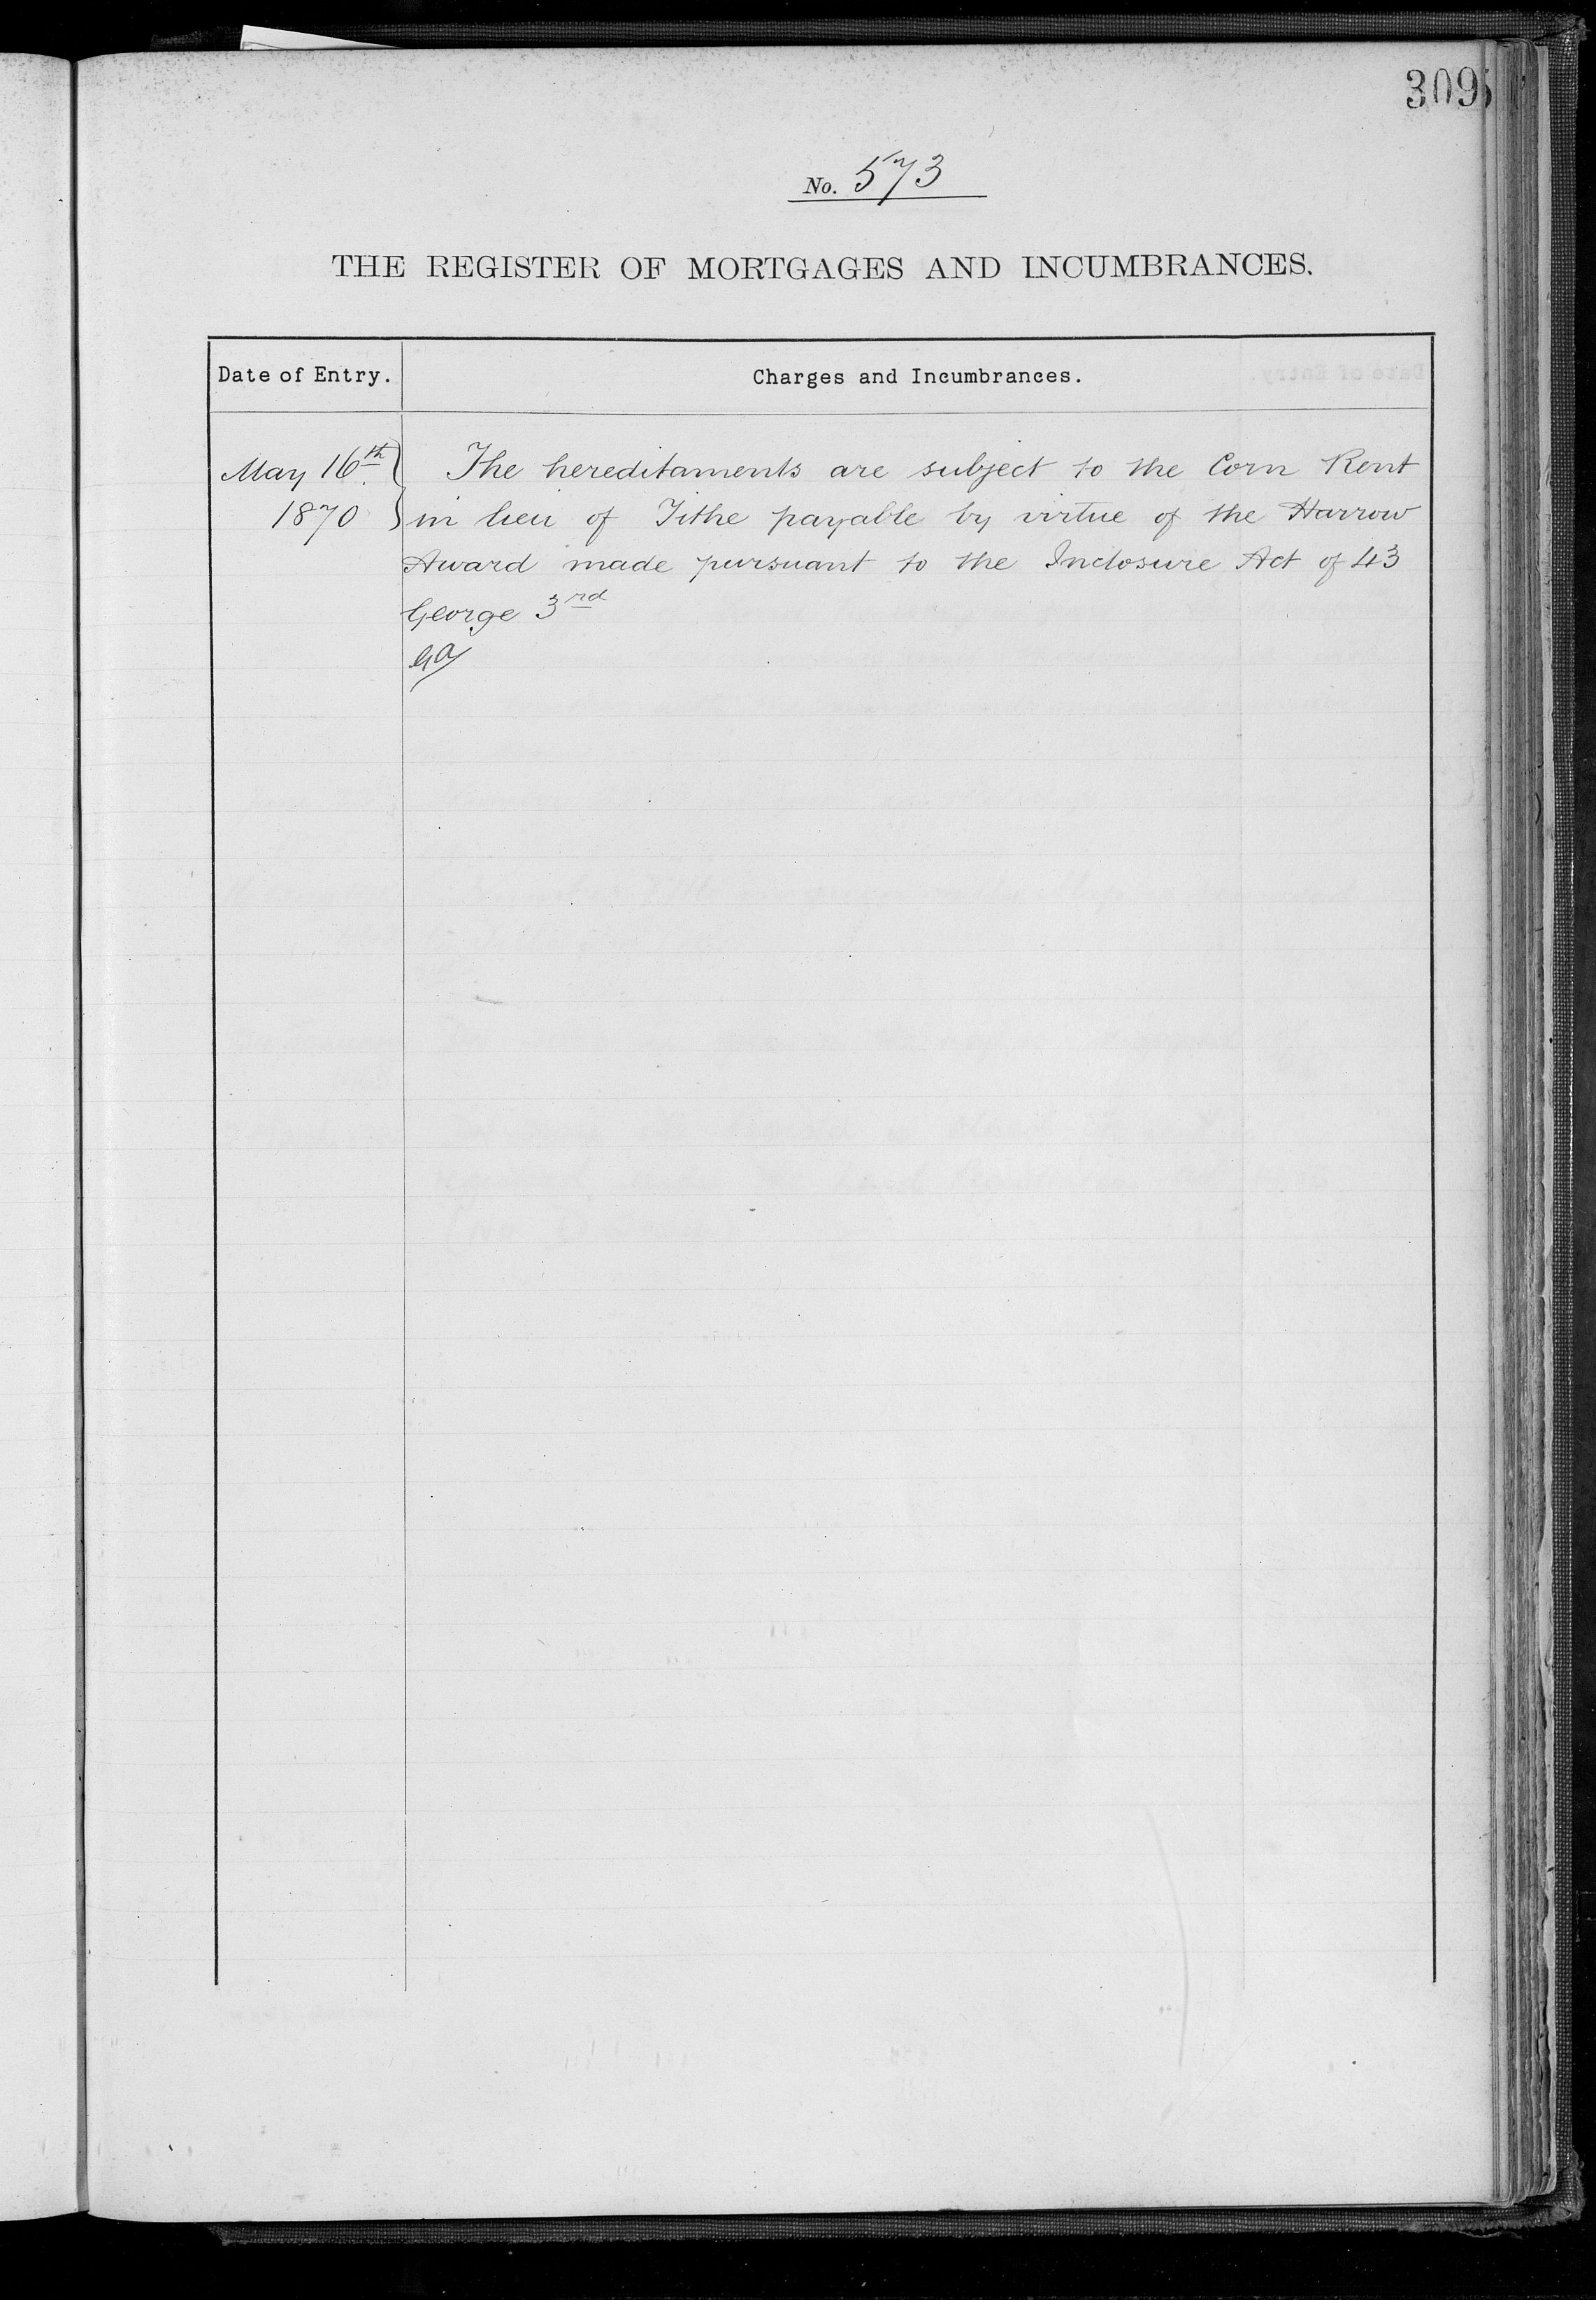 309
No. 573
THE REGISTER OF MORTGAGES AND INCUMBRANCES.
Date of Entry. Charges and Incumbrances.
May 16th. The hereditaments are subject to the Corn Rent
1870 in lieu of Tithe payable by virtue of the Harrow
Award made pursuant to the Inclosure Act of 43
George 3rd